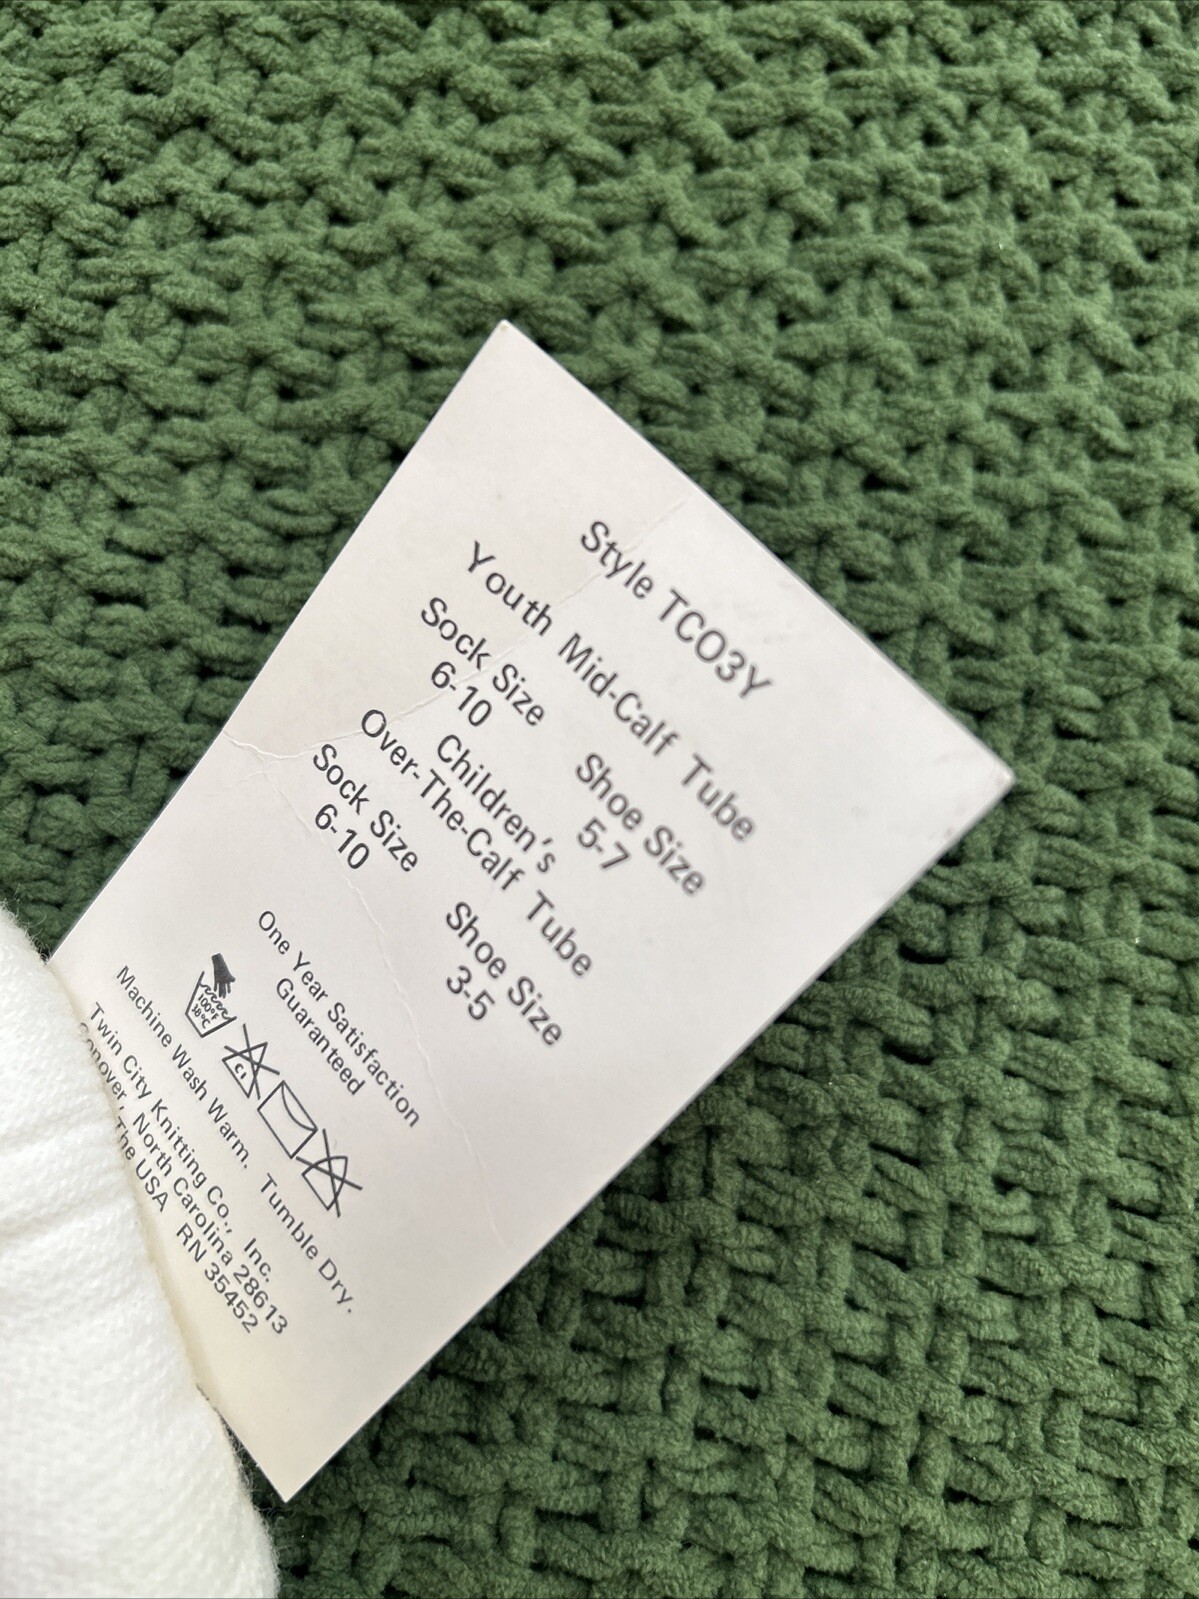 Style TCO3Y
Youth Mid-Calf Tube
Sock Size Shoe Size
6-10 5-7
Children's
Over-The-Calf Tube
Sock Size Shoe Size
6-10 3-5
One Year Satisfaction
Guaranteed
100°F
38°C
Cl
Machine Wash Warm. Tumble Dry.
Twin City Knitting Co., Inc.
Conover, North Carolina 28613
The USA RN 35452